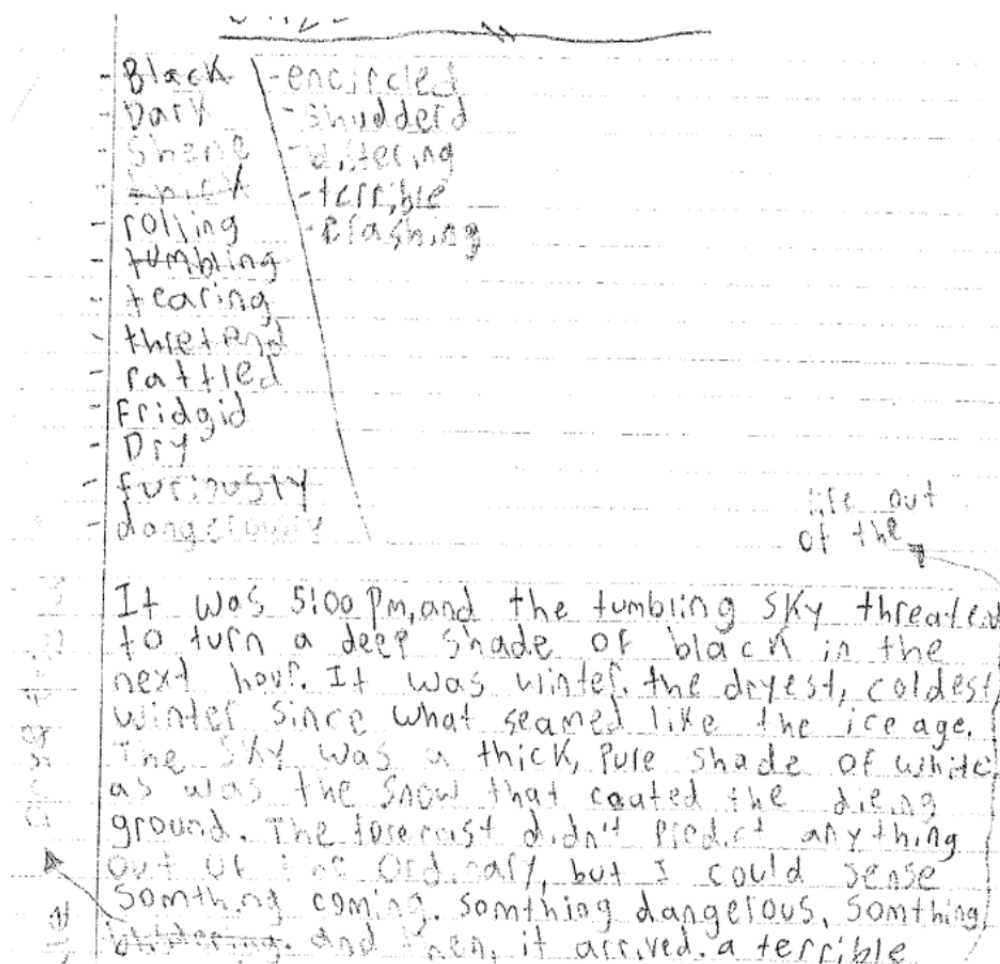 - Black
- Dark
- Shene
- rolling
- tumbling
- tearing
- thretend
- rattled
- Fridgid
- Dry
- furiously
- dangerously
- encircled
- shudderd
- terrible
life out
of the
It was 5:00 Pm, and the tumbling sky threatend
to turn a deep shade of black in the
next hour. It was winter. the dryest, coldest
winter since what seamed like the ice age.
The sky was a thick, pure shade of white
as was the snow that coated the dieing
ground. The forecast didn't predict anything
out of the ordinary, but I could sense
somthing coming. somthing dangerous, somthing
blistering. and then, it arrived. a terrible